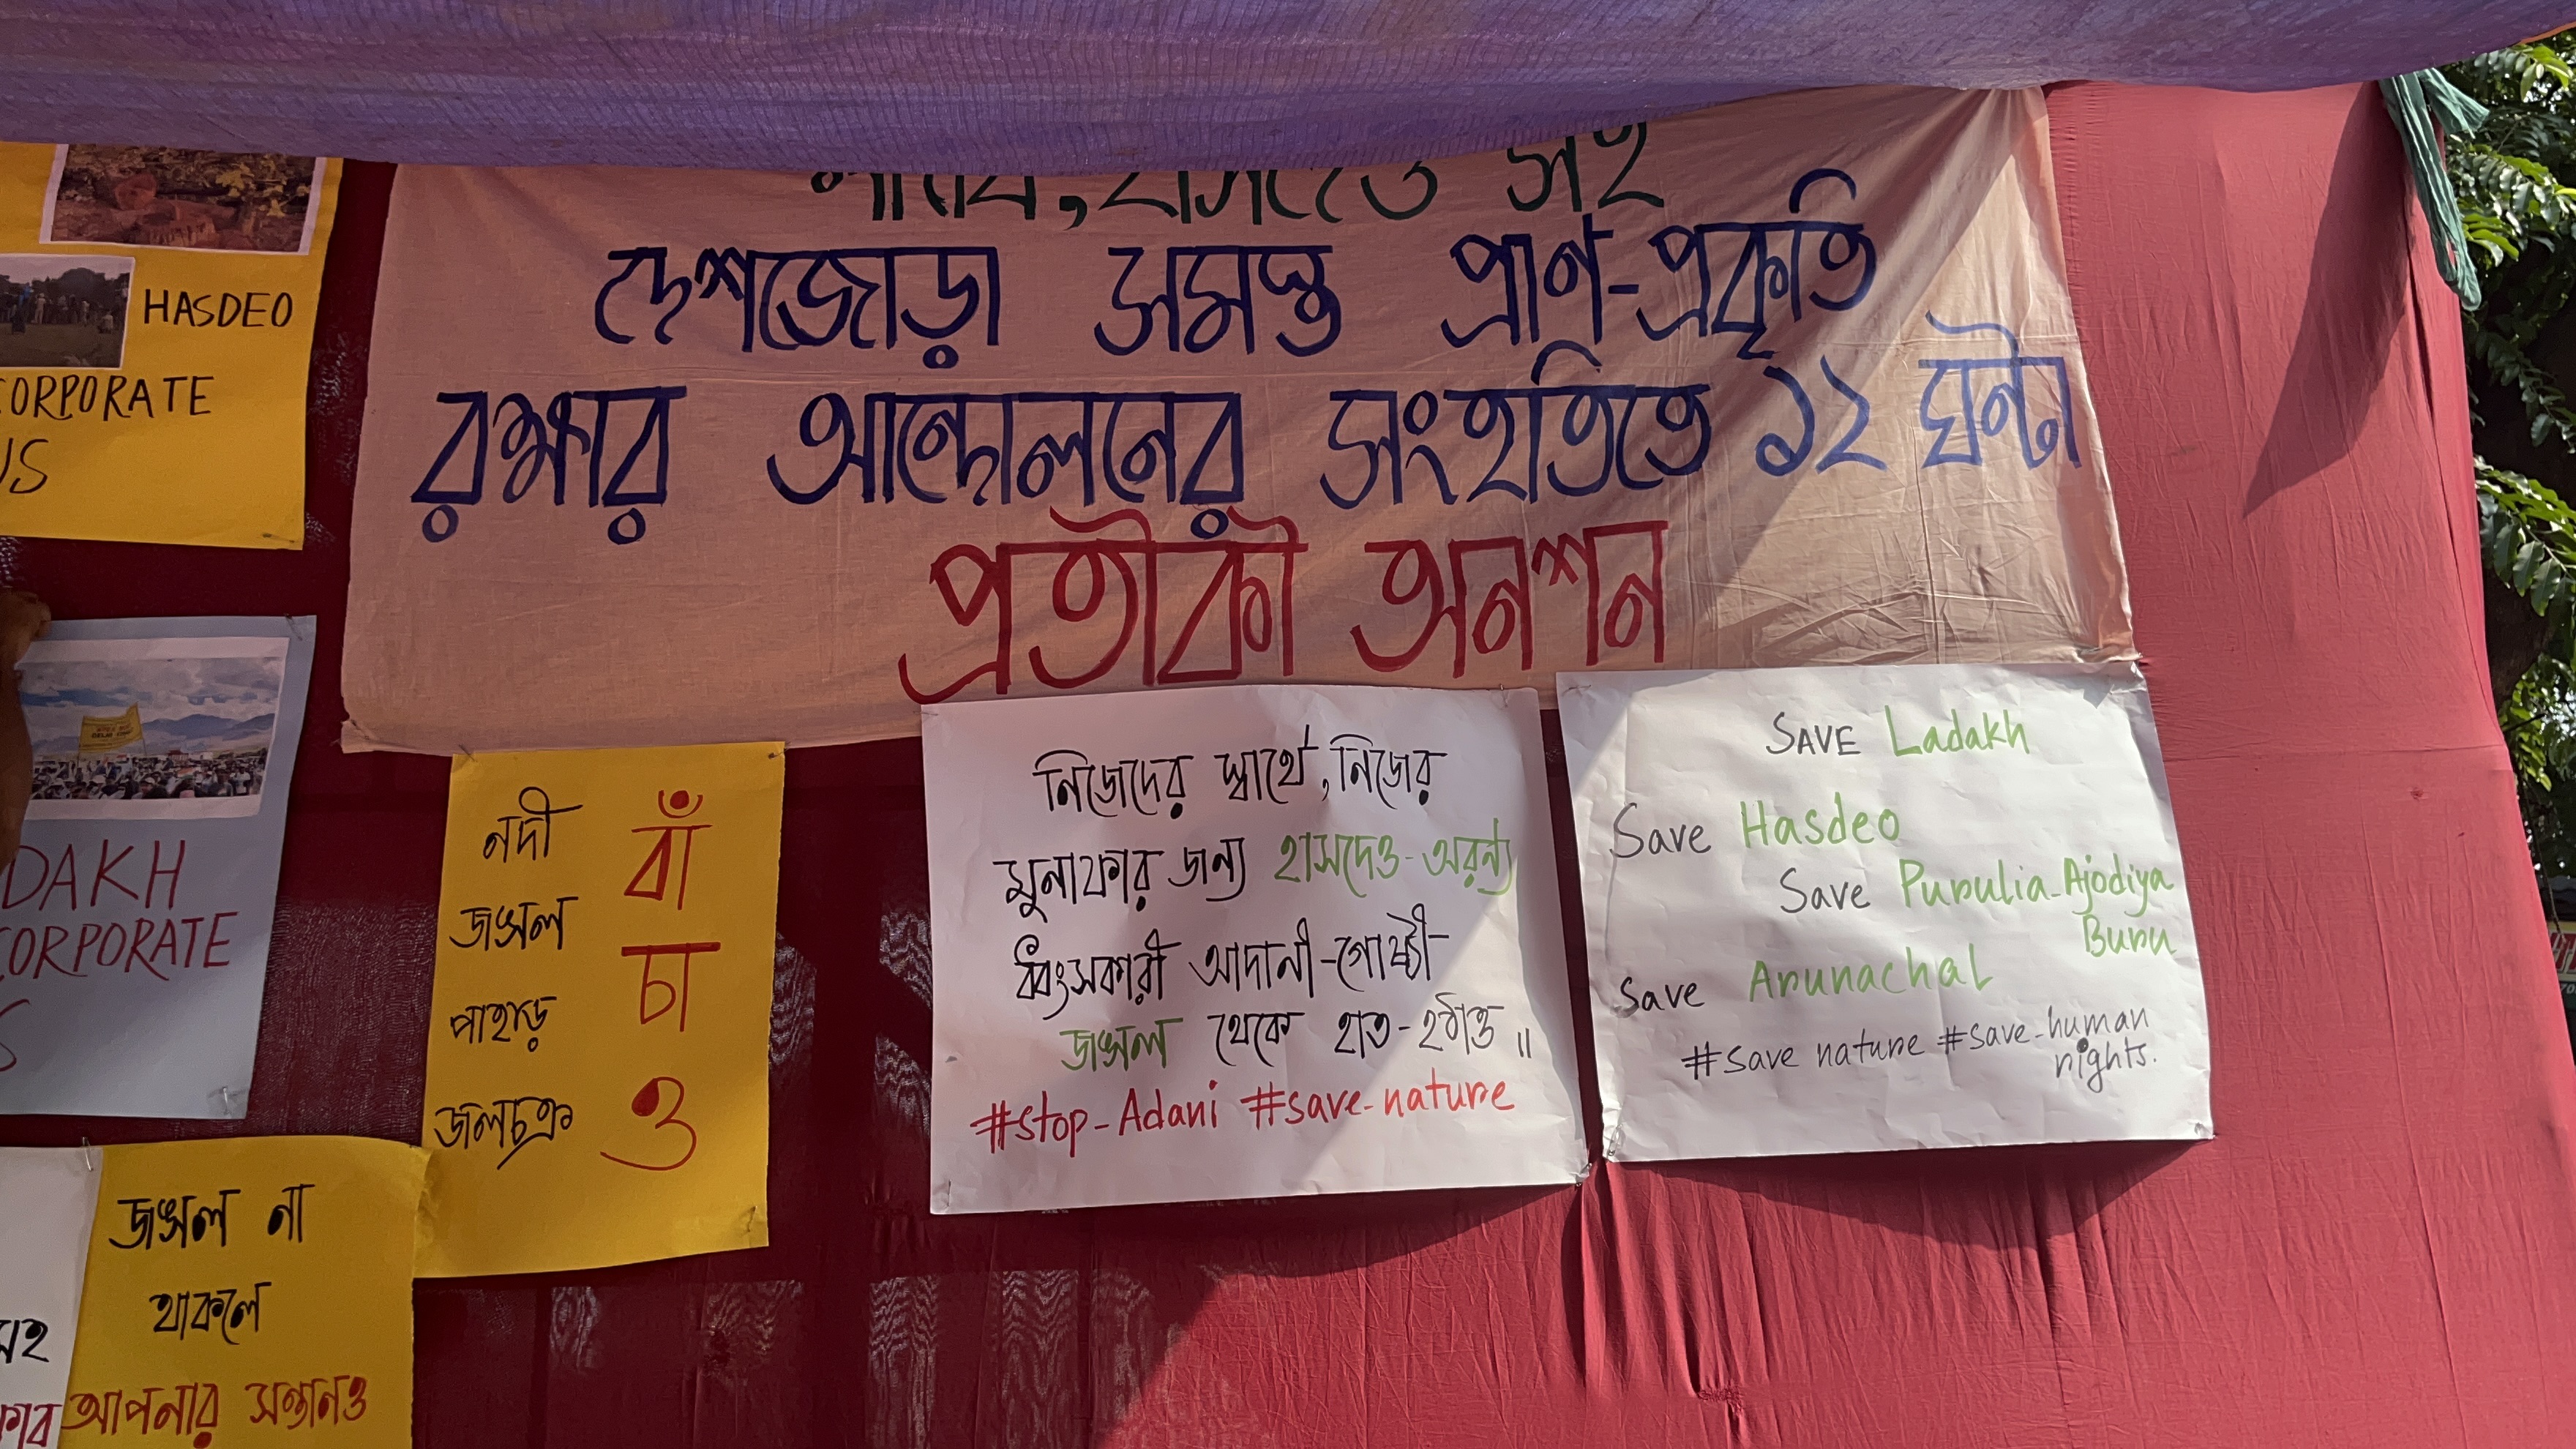 হাসদেও সহ
দেশজোড়া সমস্ত প্রাণ-প্রকৃতি
রক্ষার আন্দোলনের সংহতিতে ১২ ঘন্টা
প্রতীকী অনশন
HASDEO
CORPORATE
US
DAKH
CORPORATE
S
নদী
জঙ্গল
পাহাড়
জলচক্র
বাঁ
চা
ও
নিজেদের স্বার্থে, নিজের
মুনাফার জন্য হাসদেও-অরন্য
ধ্বংসকারী আদানী-গোষ্ঠী-
জঙ্গল থেকে হাত-হঠাও ॥
#stop-Adani #save-nature
SAVE Ladakh
Save Hasdeo
Save Purulia-Ajodiya
Buru
Save Arunachal
#save nature #save-human
rights.
জঙ্গল না
থাকলে
আপনার সন্তানও